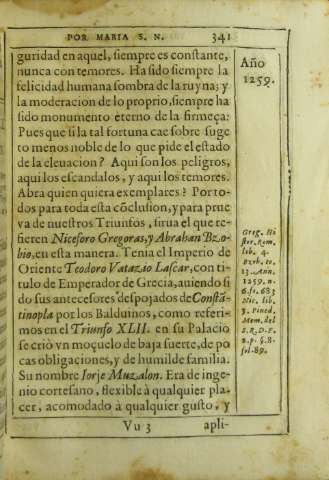 POR MARIA S. N. 341
guridad en aquel, siempre es constante,
nunca con temores. Ha sido siempre la
felicidad humana sombra de la ruyna; y
la moderacion de lo proprio, siempre ha
sido monumento eterno de la firmeça:
Pues que si la tal fortuna cae sobre suge
to menos noble de lo que pide el estado
de la eleuacion? Aqui son los peligros,
aqui los escandalos, y aqui los temores.
Abra quien quiera exemplares? Porto-
dos para toda esta cõclusion, y para prue
va de nuestros Triunfos, sirua el que re-
fieren Niceforo Gregoras, y Abrahan Bzo-
bio, en esta manera. Tenia el Imperio de
Oriente Teodoro Vatazio Lascar, con ti-
tulo de Emperador de Grecia, auiendo si
do sus antecesores despojados de Constã-
tinopla por los Balduinos, como referi-
mos en el Triunfo XLII. en su Palacio
se criò vn moçuelo de baja suerte, de po
cas obligaciones, y de humilde familia.
Su nombre Iorje Muzalon. Era de inge-
nio cortesano, flexible à qualquier pla-
cer, acomodado à qualquier gusto, y
Vu 3 apli-
Año
1259.
Greg. Hi
stor. Rom.
lib. 4.
Bzob. to.
13. Ann.
1259. n.
6. fo. 683
Nic. lib.
3. Pined.
Mem. del
S. R. D. F.
2. p. §. 8.
fol. 89.